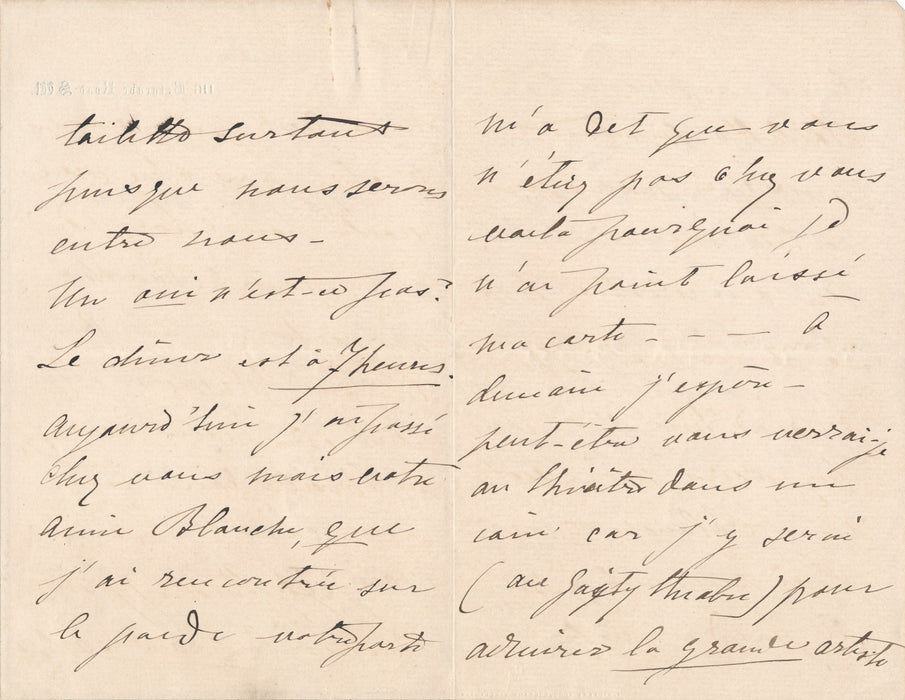 toilette surtout
puisque nous serons
entre nous -
Un oui n'est-ce pas?
Le diner est à 7 heures.
aujourd'hui j'ai passé
chez vous mais votre
amie Blanche, que
j'ai rencontrée sur
le pas de votre porte
m'a dit que vous
n'étiez pas chez vous
voilà pourquoi je
n'ai point laissé
ma carte - - - - À
demain j'espère -
peut-être vous verrai-je
au théâtre dans un
coin car j'y serai
(au Gaiety theatre) pour
admirer la grande artiste